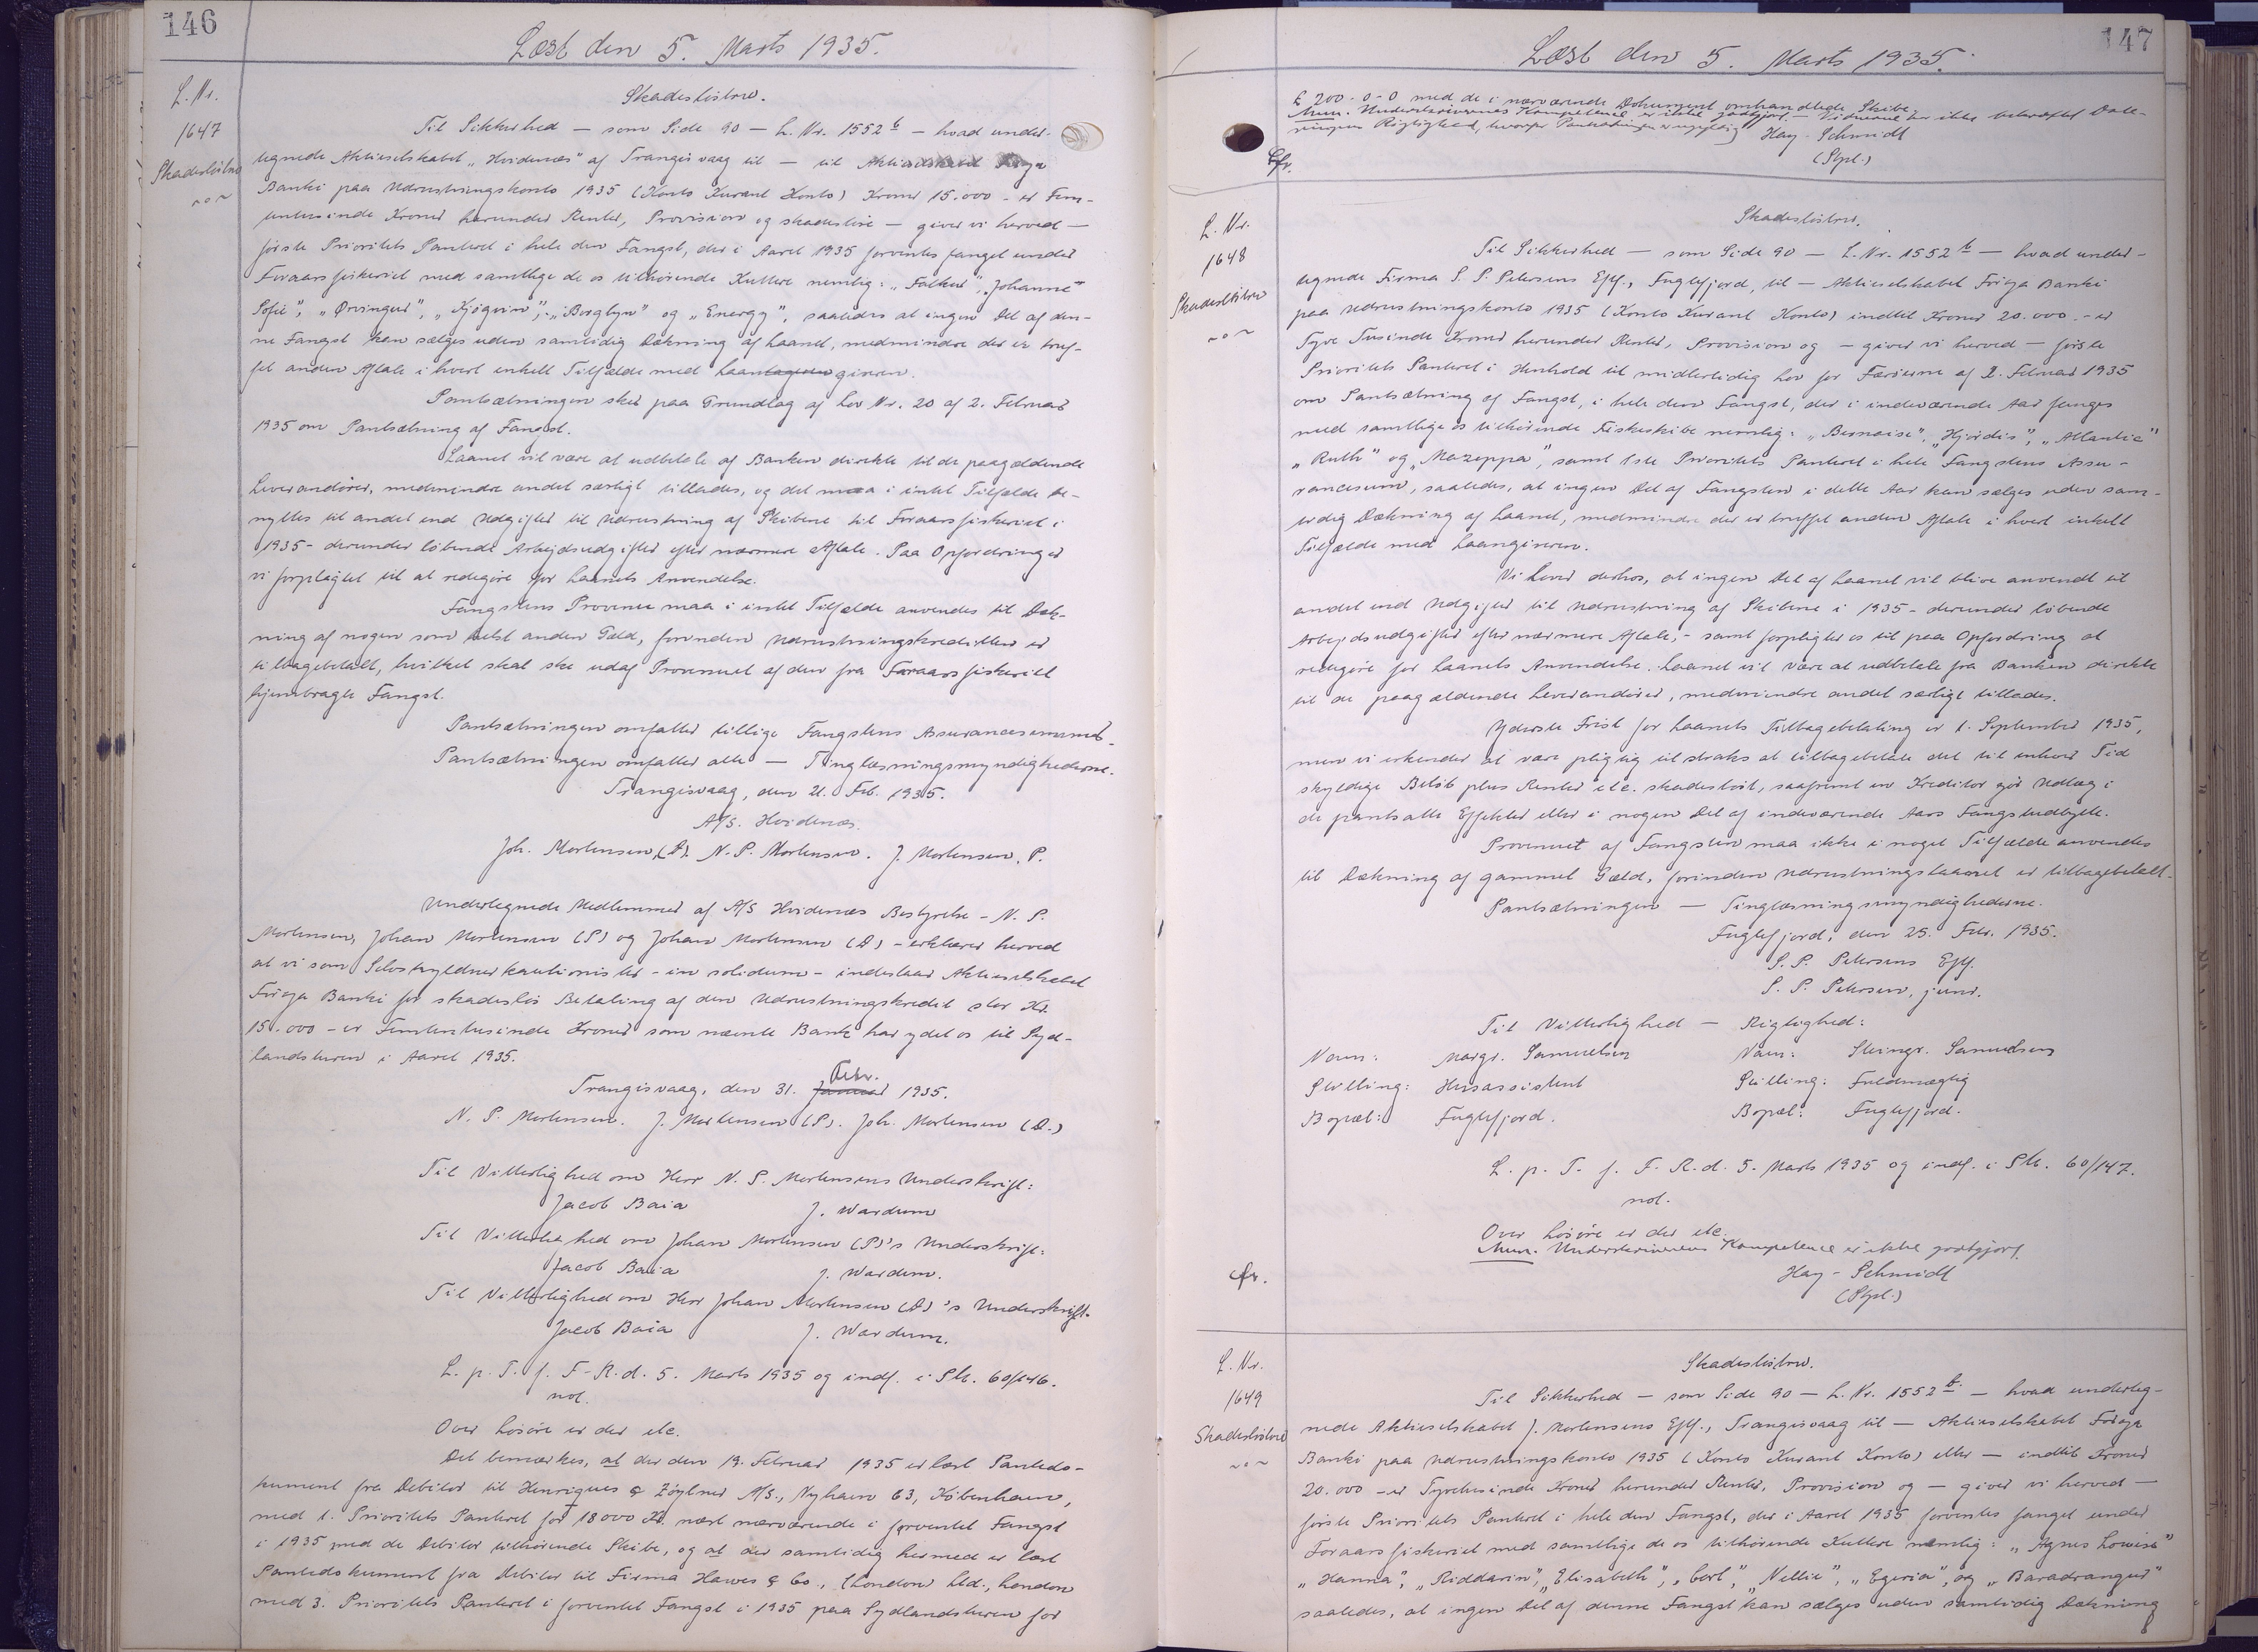 146
Læst den 5. Marts 1935.
L. Nr.
1647
Skadesløsbrev
Skadesløsbrev.
Til Sikkerhed — som Side 90 — L. Nr. 1552 b — hvad under-
tegnede Aktieselskabet "Hvidenæs" af Trangisvaag til — til Aktieselskabet Føroya
Banki paa Udrustningskonto 1935 (Konto Kurant Konto) Kroner 15.000 - er Fem-
tentusinde Kroner herunder Renter, Provision og skadesløse — giver vi herved —
første Prioritets Panteret i hele den Fangst, der i Aaret 1935 forventes fanget under
Foraarsfiskeriet med samtlige de os tilhørende Kuttere nemlig: "Falkur", "Johanne
Sofie", "Ørvingur", "Kjøgvin", "Borglyn" og "Energy", saaledes at ingen Del af den-
ne Fangst kan sælges uden samtidig Dækning af Laanet, medmindre der er truf-
fet anden Aftale i hvert enkelt Tilfælde med Laantageren giveren.
Pantsætningen sker paa Grundlag af Lov Nr. 20 af 2. Februar
1935 om Pantsætning af Fangst.
Laanet vil være at udbetale af Banken direkte til de paagældende
Leverandører, medmindre andet særligt tillades, og det maa i intet Tilfælde be-
nyttes til andet end Udgifter til Udrustning af Skibene til Foraarsfiskeriet i
1935 - derunder løbende Arbejdsudgifter efter nærmere Aftale. Paa Opfordring er
vi forpligtet til at redegøre for Laanets Anvendelse.
Fangstens Provenu maa i intet Tilfælde anvendes til Dæk-
ning af nogen som helst anden Gæld, forinden Udrustningskreditten er
tilbagebetalt, hvilket skal ske udaf Provenuet af den fra Foraarsfiskeriet
hjembragte Fangst.
Pantsætningen omfatter tillige Fangstens Assurancesummer.
Pantsætningen omfatter alle — Tinglæsningsmyndighederne.
Trangisvaag, den 21. Feb. 1935.
A/S. Hvidenæs.
Joh. Mortensen, (D). N. P. Mortensen. J. Mortensen. P.
Undertegnede Medlemmer af A/S Hvidenæs Bestyrelse - N. P.
Mortensen, Johan Mortensen (P) og Johan Mortensen (D) - erklærer herved
at vi som Selvskyldnerkautionister - in solidum - indestaar Aktieselskabet
Føroya Banki for skadesløs Betaling af den Udrustningskredit stor Kr.
15.000 - er Femtentusinde Kroner som nævnte Bank har ydet os til Syd-
landsturen i Aaret 1935.
Trangisvaag, den 31. Januar Febr. 1935.
N. P. Mortensen. J. Mortensen (P). Joh. Mortensen (D.)
Til Vitterlighed om Herr N. P. Mortensens Underskrift:
Jacob Baia J. Wardum
Til Vitterlighed om Johan Mortensen (P)'s Underskrift:
Jacob Baia J. Wardum.
Til Vitterlighed om Herr Johan Mortensen (D)'s Underskrift.
Jacob Baia J. Wardum.
L. p. T. f. F. R. d. 5. Marts 1935 og indf. i Ptb. 60/146.
not.
Over Løsøre er der etc.
Det bemærkes, at der den 19. Februar 1935 er læst Pantedo-
kument fra Debitor til Henriques & Zöylner A/S., Nyhavn 63, København,
med 1. Prioritets Panteret for 18000 Kr. næst nærværende i forventet Fangst
i 1935 med de Debitor tilhørende Skibe, og at der samtidig hermed er læst
Pantedokument fra Debitor til Firma Hawes & Co., (London) Ltd., London
med 3. Prioritets Panteret i forventet Fangst i 1935 paa Sydlandsturen for
147
Læst den 5. Marts 1935.
£ 200-0-0 med de i nærværende Dokument omhandlede Skibe.
Anm. Underskrivernes Kompetence er ikke godtgjort. - Vidnerne har ikke bekræftet Date-
ringens Rigtighed, hvorfor Pantsætningen er ugyldig
Hay-Schmidt
(Stpl.)
Cfr.
L. Nr.
1648
Skadesløsbrev
Skadesløsbrev.
Til Sikkerhed — som Side 90 — L. Nr. 1552 b — hvad under-
tegnede Firma S. P. Petersens Eftf., Fuglefjord, til — Aktieselskabet Føroya Banki
paa Udrustningskonto 1935 (Konto Kurant Konto) indtil Kroner 20.000. - er
Tyve Tusinde Kroner herunder Renter, Provision og — giver vi herved — første
Prioritets Panteret i Henhold til midlertidig Lov for Færøerne af 2. Februar 1935
om Pantsætning af Fangst, i hele den Fangst, der i indeværende Aar fanges
med samtlige os tilhørende Fiskeskibe nemlig: "Bernaise", "Hjørdis", "Atlantic"
"Ruth" og "Mazeppa", samt 1ste Prioritets Panteret i hele Fangstens Assu-
rancesum, saaledes, at ingen Del af Fangsten i dette Aar kan sælges uden sam-
tidig Dækning af Laanet, medmindre der er truffet anden Aftale i hvert enkelt
Tilfælde med Laangiveren.
Vi lover derhos, at ingen Del af Laanet vil blive anvendt til
andet end Udgifter til Udrustning af Skibene i 1935 - derunder løbende
Arbejdsudgifter efter nærmere Aftale, - samt forpligter os til paa Opfordring at
redegøre for Laanets Anvendelse. Laanet vil være at udbetale fra Banken direkte
til de paagældende Leverandører, medmindre andet særligt tillades.
Yderste Frist for Laanets Tilbagebetaling er 1. September 1935,
men vi erkender at være pligtig til straks at tilbagebetale det til enhver Tid
skyldige Beløb plus Renter etc. skadesløst, saafremt en Kreditor gør Udlæg i
de pantsatte Effekter eller i nogen Del af indeværende Aars Fangstudbytte.
Provenuet af Fangsten maa ikke i noget Tilfælde anvendes
til Dækning af gammel Gæld, forinden Udrustningslaanet er tilbagebetalt.
Pantsætningen — Tinglæsningsmyndighederne.
Fuglefjord, den 25. Febr. 1935.
S. P. Petersens Eftf.
S. P. Petersen, junr.
Til Vitterlighed — Rigtighed:
Navn: Margr. Samuelsen Navn: Steingr. Samuelsen
Stilling: Husassistent Stilling: Fuldmægtig
Bopæl: Fuglefjord. Bopæl: Fuglefjord.
L. p. T. f. F. R. d. 5. Marts 1935 og indf. i Ptb. 60/147.
not.
Over Løsøre er der etc.
Anm. Underskriverens Kompetence er ikke godtgjort.
Hay-Schmidt
(Stpl.)
cfr.
L. Nr.
1649
Skadesløsbrev
Skadesløsbrev.
Til Sikkerhed — som Side 90 — L. Nr. 1552 b — hvad underteg-
nede Aktieselskabet J. Mortensens Eftf., Trangisvaag til — Aktieselskabet Føroya
Banki paa Udrustningskonto 1935 (Konto Kurant Konto) eller — indtil Kroner
20.000 - er Tyvetusinde Kroner herunder Renter, Provision og — giver vi herved —
første Prioritets Panteret i hele den Fangst, der i Aaret 1935 forventes fanget under
Foraarsfiskeriet med samtlige de os tilhørende Kuttere nemlig: "Agnes Lowise"
"Hanna", "Riddarin", "Elisabeth", "Carl", "Nellie", "Egeria", og "Baradrangur"
saaledes, at ingen Del af denne Fangst kan sælges uden samtidig Dækning